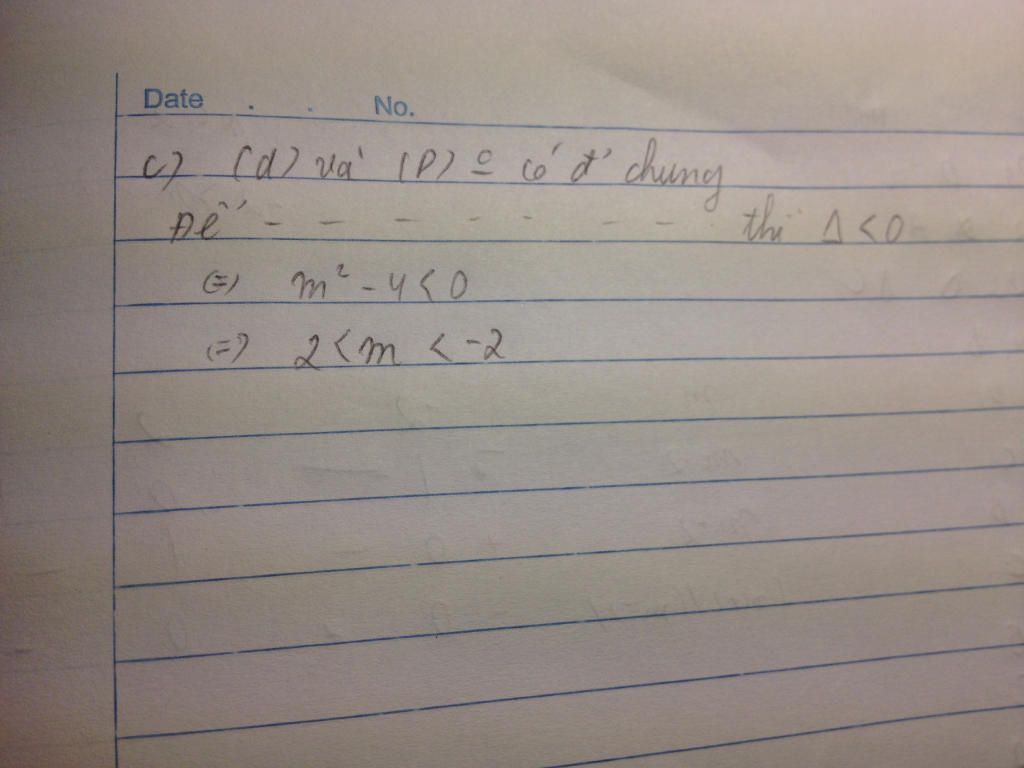 Date . . No.
c) (d) và (P) o có đ' chung
Để - - - - - - - thì Δ < 0
(=) m² - 4 < 0
(=) 2 < m < -2